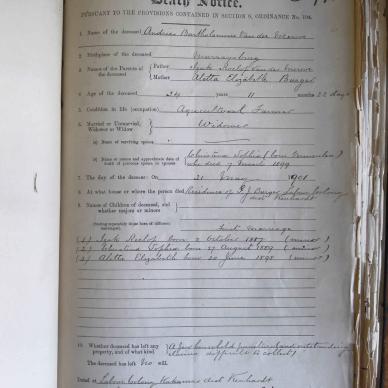 Death Notice.
PURSUANT TO THE PROVISIONS CONTAINED IN SECTION 9, ORDINANCE No. 104.
1. Name of the deceased Andries Bartholomeus Van der Merwe
2. Birthplace of the deceased Murraysburg
3. Names of the Parents of the deceased
Father Izak Roelof van der Merwe
Mother Aletta Elizabeth Burger
4. Age of the deceased 34 years 11 months 22 days
5. Condition in life (occupation) Agricultural Farmer
6. Married or Unmarried, Widower or Widow Widower
(a) Name of surviving spouse
(b) Name or names and approximate date of death of previous spouse or spouses Christina Sophia (born
who died 1899
7. The day of the decease: On 21 1901
8. At what house or where the person died Residence of Burger Labour Colony
dist Kenhardt
9. Names of Children of deceased, and whether majors or minors
First marriage
(1) Izak Roelof born 2 October 1887 (minor)
(2) Christina Sophia born 27 August 1889 (minor)
(3) Aletta Elizabeth born 20 June 1898 (minor)
10. Whether deceased has left any property, and of what kind A few household furniture and outstanding
claims difficult to collect)
The deceased has left no will.
Dated at Labour Colony Kakamas dist Kenhardt